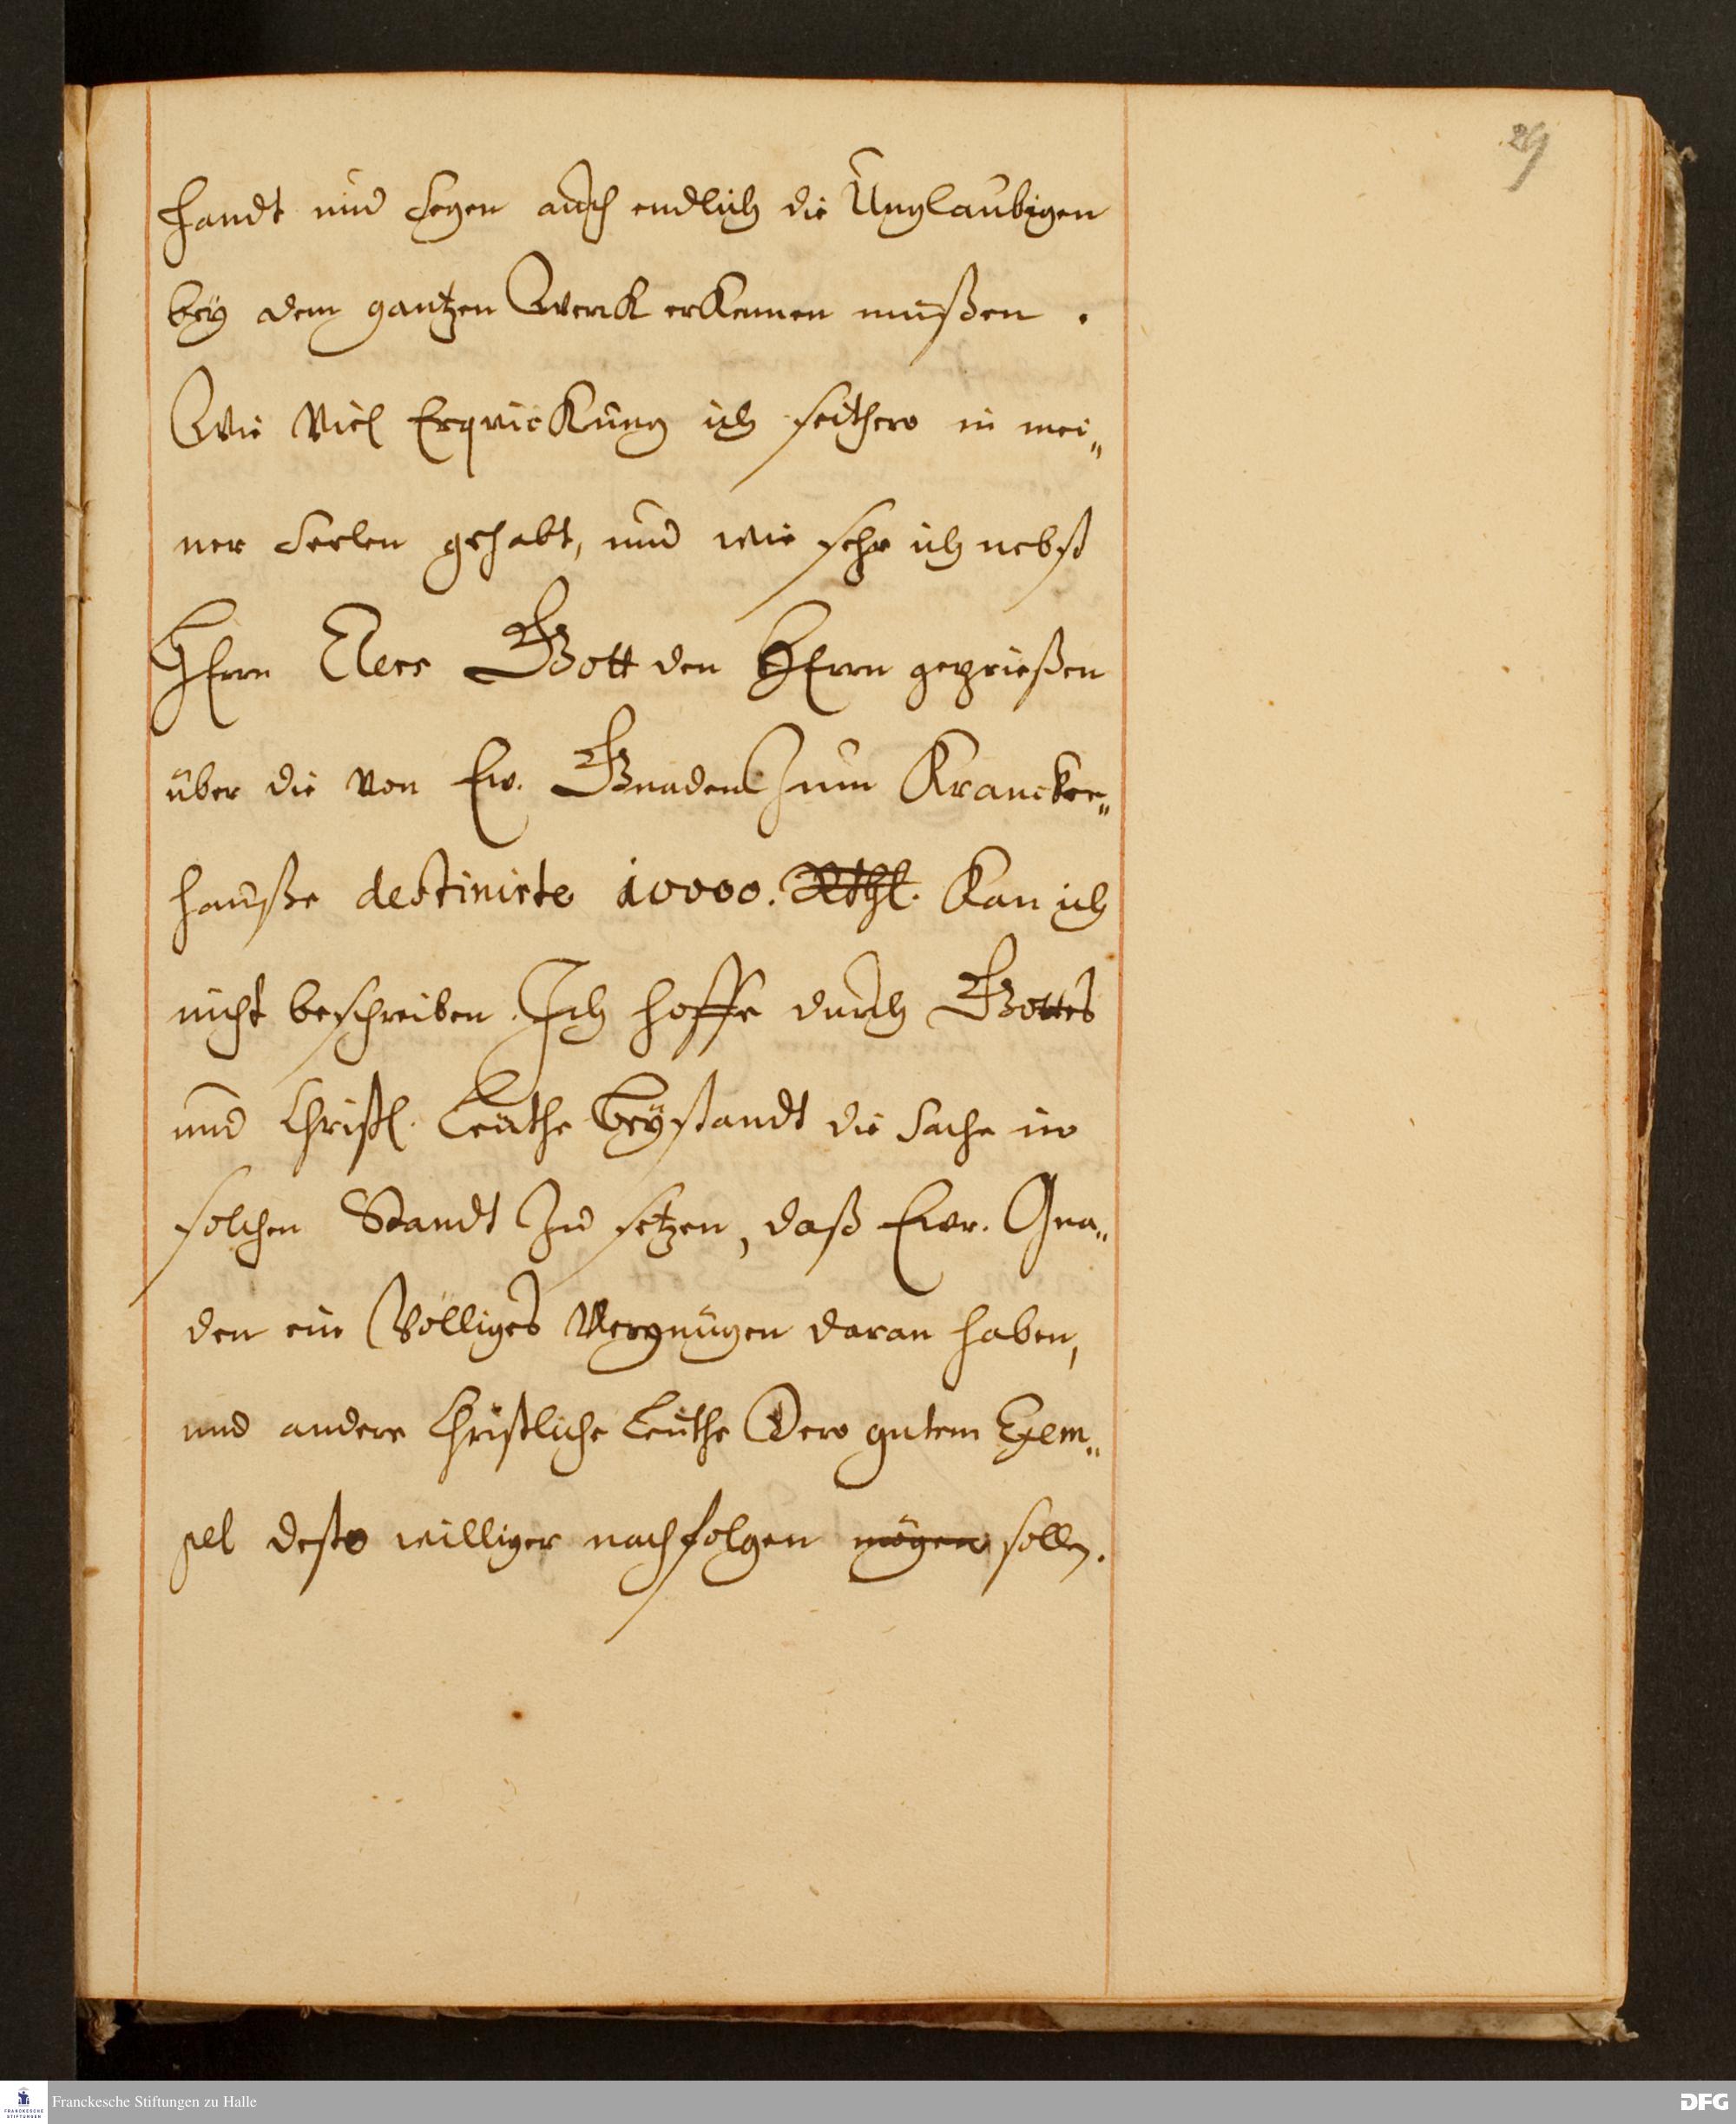 29
Handt und Segen auch endlich die Unglaubigen
bey dem gantzen Werck erkennen müßen.
Wie viel Erquickung ich seithero in mei„
ner Seelen gehabt, und wie sehr ich nebst
HErrn Elers Gott den HErrn geprießen
über die von Ew. Gnaden zum Krancken„
hauße destinirte 10000. Rthl. kan ich
nicht beschreiben. Ich hoffe durch Gottes
und Christl. Leuthe beystandt die Sache in
solchen Standt zu setzen, daß Ewr. Gna„
den ein völliges Vergnügen daran haben,
und andere Christliche Leuthe Dero gutem Exem„
pel desto williger nachfolgen mögen sollen.
Franckesche Stiftungen zu Halle
FRANCKESCHE STIFTUNGEN
DFG